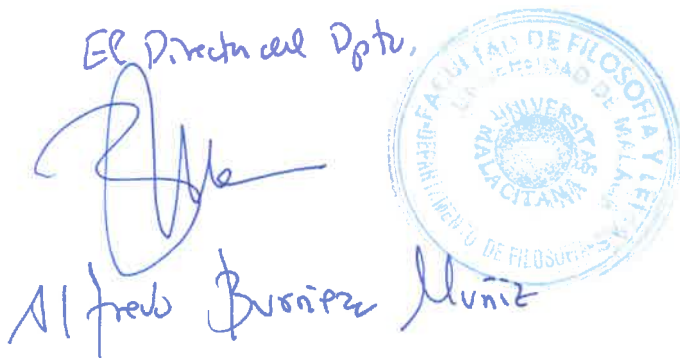 El Director del Dpto.
FACULTAD DE FILOSOFIA Y LET
UNIVERSIDAD DE MALAGA
UNIVERSITAS
MALACITANA
DEPARTAMENTO DE FILOSOFIA
Alfredo Muñiz